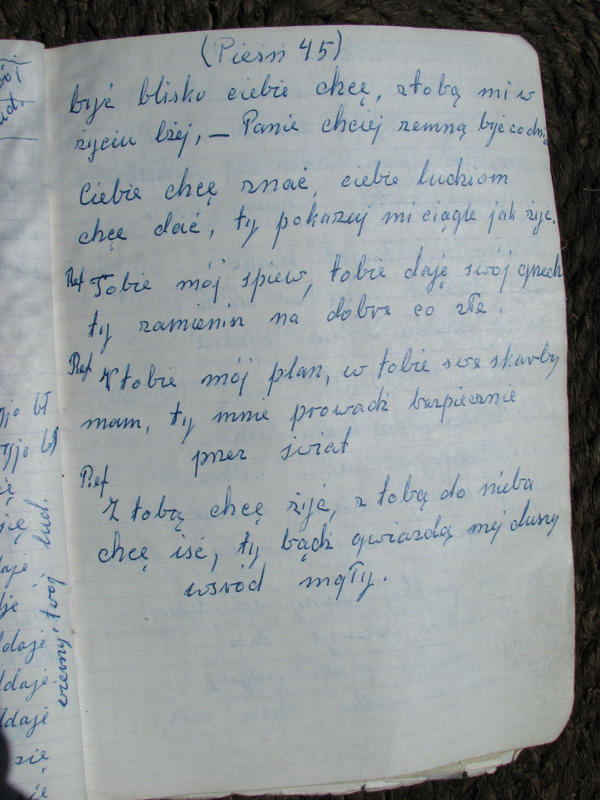 (Pieśń 45)
być blisko ciebie chcę, stobą mi w
życiu lżej, – Panie chciej zemną być co dnia
Ciebie chcę znać, ciebie ludziom
chcę dać, ty pokazuj mi ciągle jak żyje.
Ref Tobie mój spiew, tobie daję swój grzech
ty zamienisz na dobre co złe.
Ref W tobie mój plan, w tobie swe skarby
mam, ty mnie prowadź bezpiecznie
przez świat
Ref
Z tobą chcę żije, z tobą do nieba
chcę iść, ty bądź gwiazdą mej duszy
wsród mgły.
lud.
wierny twój
daje
ddaje
ddaje
się